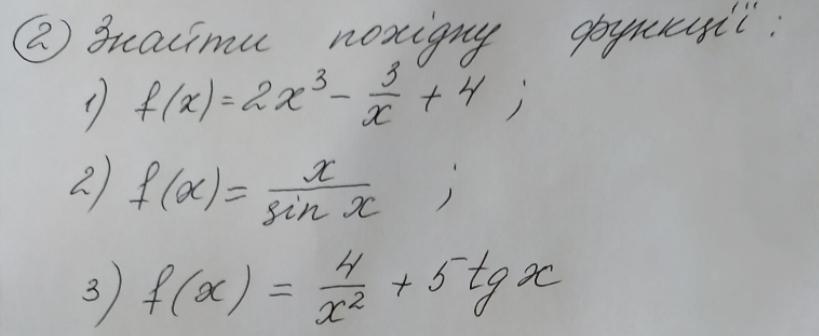 ② Знайти похідну функції:
1) f(x)=2x³ - 3/x + 4 ;
2) f(x)= x/sin x ;
3) f(x) = 4/x² + 5 tg x